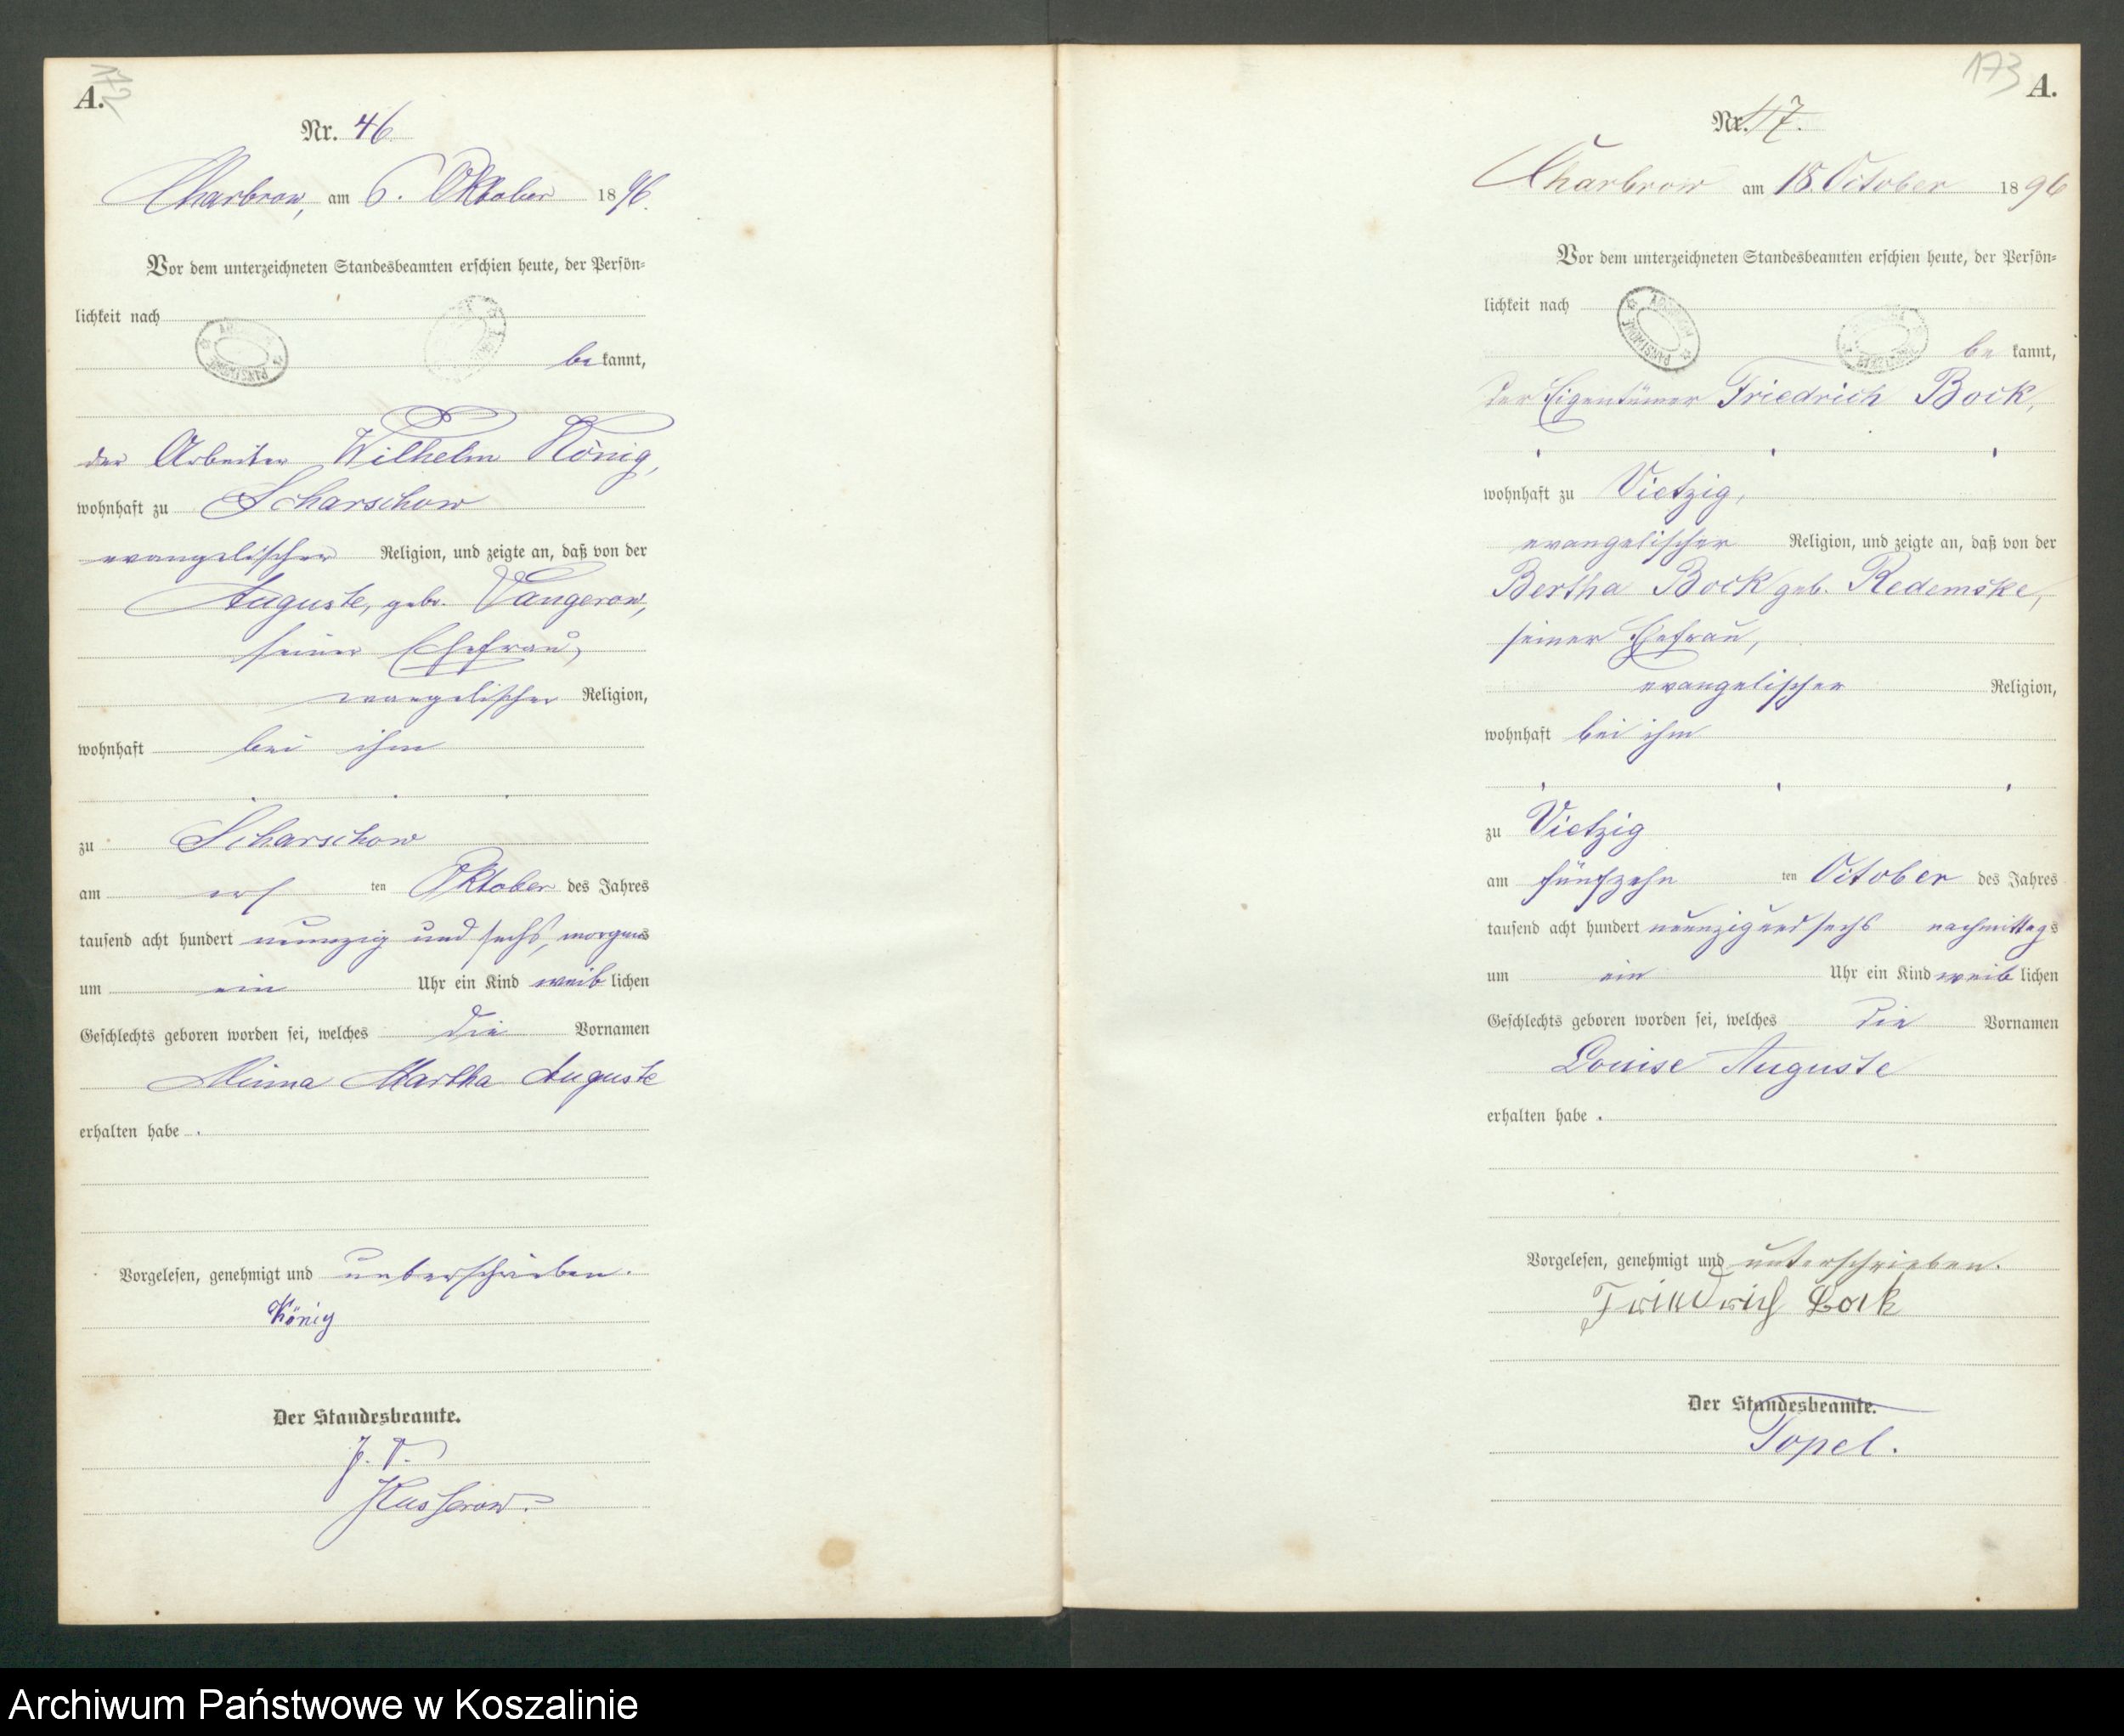 A.
172
Nr. 46
Charbrow, am 6. Oktober 1896.
Vor dem unterzeichneten Standesbeamten erschien heute, der Persön-
lichkeit nach
be kannt,
der Arbeiter Wilhelm König,
wohnhaft zu Scharschow
evangelischer Religion, und zeigte an, daß von der
Auguste, geb. Vangerow,
seiner Ehefrau,
evangelischer Religion,
wohnhaft bei ihm
zu Scharschow
am ers ten Oktober des Jahres
tausend acht hundert neunzig und sechs, morgens
um ein Uhr ein Kind weib lichen
Geschlechts geboren worden sei, welches die Vornamen
Minna Martha Auguste
erhalten habe .
Vorgelesen, genehmigt und unterschrieben.
König
Der Standesbeamte.
J. V.
Kusserow.
173
A.
Nr. 47.
Charbrow am 18. October 1896
Vor dem unterzeichneten Standesbeamten erschien heute, der Persön-
lichkeit nach
be kannt,
der Eigentümer Friedrich Bock,
wohnhaft zu Vietzig,
evangelischer Religion, und zeigte an, daß von der
Bertha Bock geb. Redemske,
seiner Ehefrau,
evangelischer Religion,
wohnhaft bei ihm
zu Vietzig
am fünfzehn ten October des Jahres
tausend acht hundert neunzig und sechs nachmittags
um ein Uhr ein Kind weib lichen
Geschlechts geboren worden sei, welches die Vornamen
Louise Auguste
erhalten habe .
Vorgelesen, genehmigt und unterschrieben.
Friedrich Bock
Der Standesbeamte.
Topel.
Archiwum Państwowe w Koszalinie